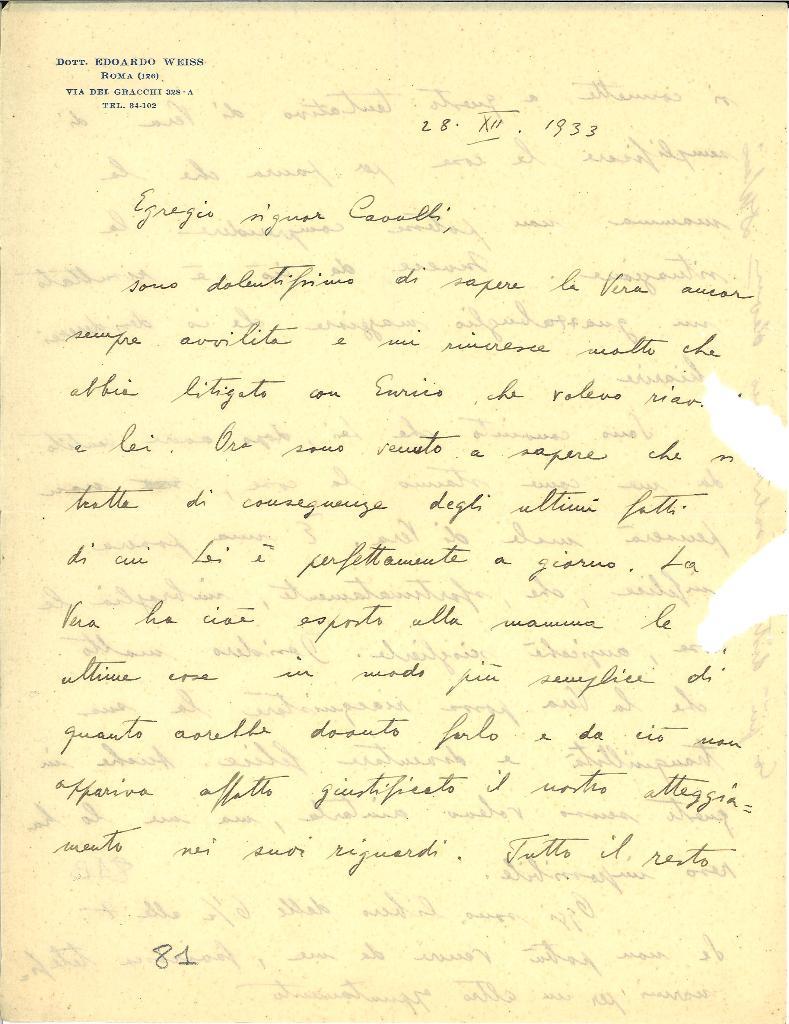 DOTT. EDOARDO WEISS
ROMA (126)
VIA DEI GRACCHI 328-A
TEL. 34-102
28. XII. 1933
Egregio signor Cavalli,
sono dolentissimo di sapere la Vera ancor
sempre avvilita e mi rincresce molto che
abbia litigato con Enrico, che volevo
a lei. Ora sono venuto a sapere che si
tratta di conseguenze degli ultimi fatti
di cui Lei è perfettamente a giorno. La
Vera ha cioè esposto alla mamma le
ultime cose in modo più semplice di
quanto avrebbe dovuto farlo e da ciò non
appariva affatto giustificato il nostro atteggia=
mento nei suoi riguardi. Tutto il resto
81